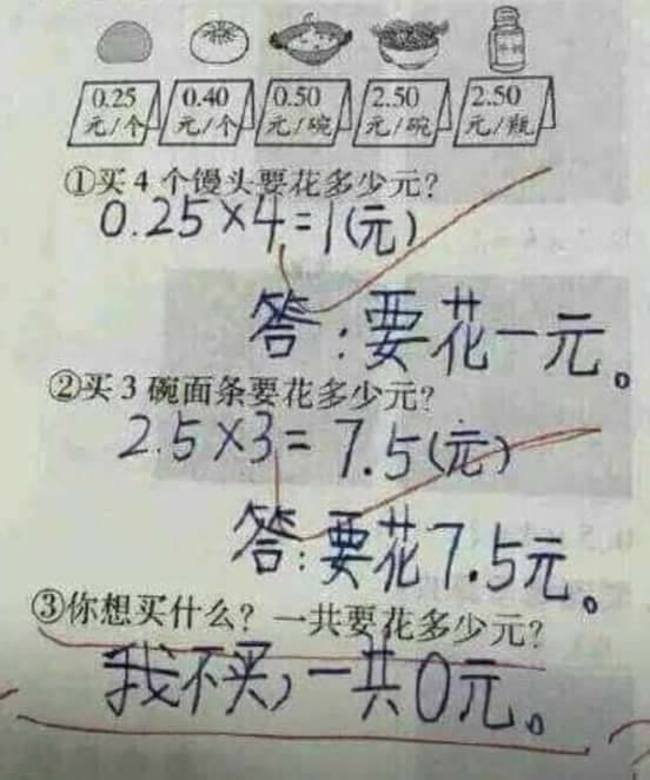 0.25 0.40 0.50 2.50 2.50
元/个 元/个 元/碗 元/碗 元/瓶
①买4个馒头要花多少元?
0.25×4=1(元)
答:要花一元。
②买3碗面条要花多少元?
2.5×3=7.5(元)
答:要花7.5元。
③你想买什么?一共要花多少元?
我不买,一共0元。